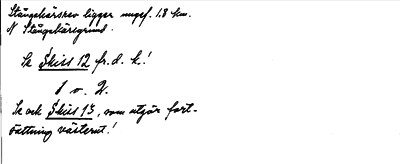 Stångskärsrev ligger ungef. 1.8 km.
N Stångskärsgrund.
Se Skiss 12 fr. d. k.!
1 o. 2.
Se och Skiss 13, som utgör fort-
sättning västerut!